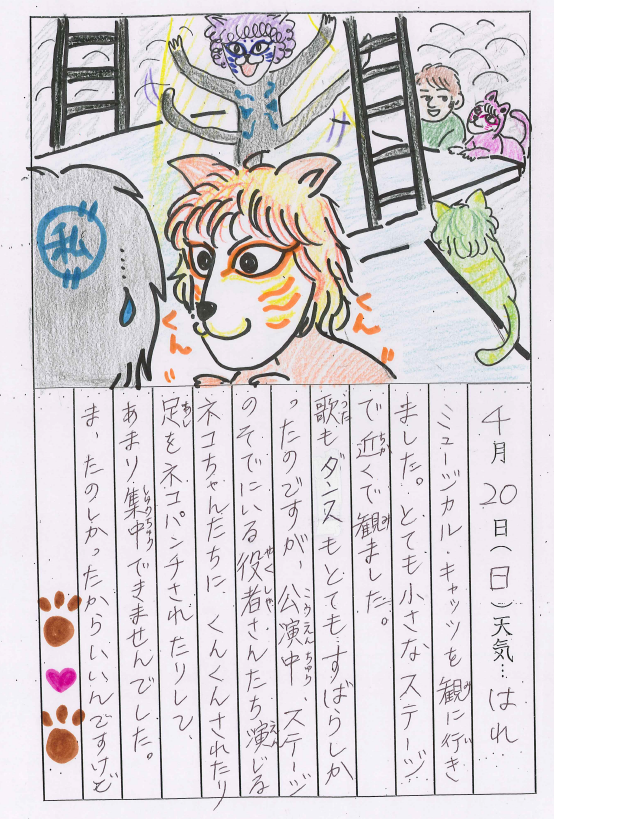 私
くん
くん
4月20日(日)天気…はれ
ミュージカル・キャッツを観に行き
ました。とても小さなステージ
で近くで観ました。
歌もダンスもとてもすばらしか
ったのですが、公演中、ステージ
のそでにいる役者さんたち演じる
ネコちゃんたちに、くんくんされたり
足をネコパンチされたりして、
あまり集中できませんでした。
ま、たのしかったからいいんですけど